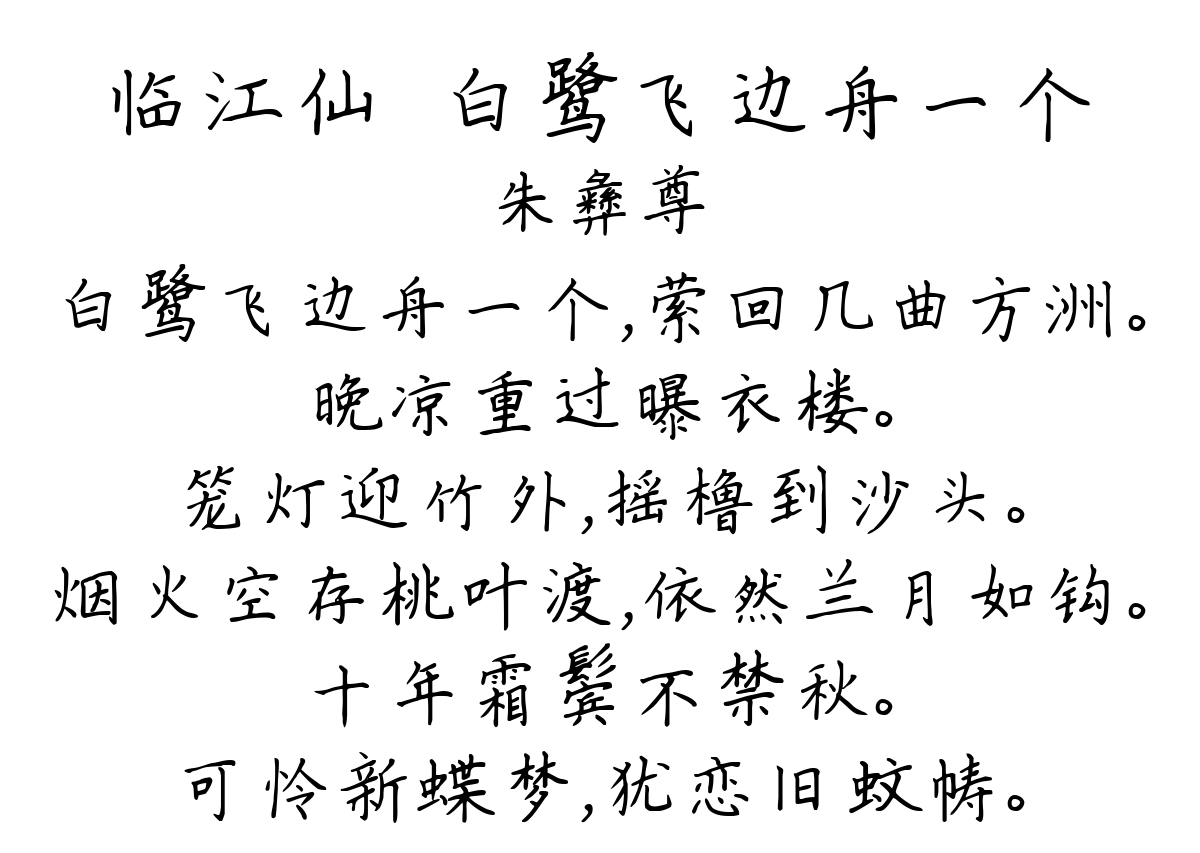 临江仙 白鹭飞边舟一个
朱彝尊
白鹭飞边舟一个,萦回几曲方洲。
晚凉重过曝衣楼。
笼灯迎竹外,摇橹到沙头。
烟火空存桃叶渡,依然兰月如钩。
十年霜鬓不禁秋。
可怜新蝶梦,犹恋旧蚊帱。